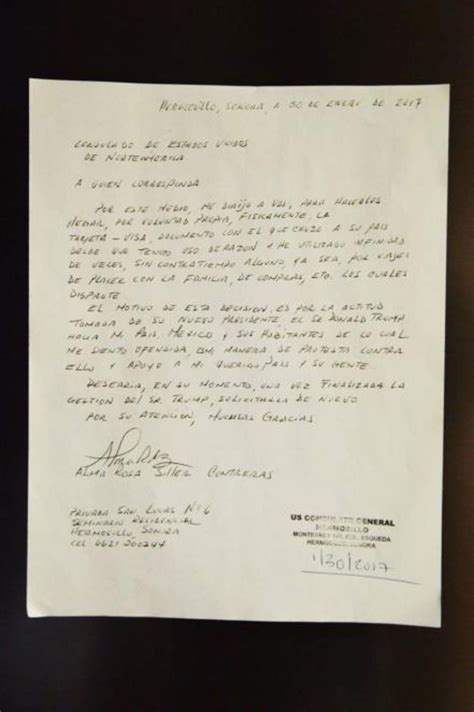 HERMOSILLO, SONORA A 30 DE ENERO DE 2017
CONSULADO DE ESTADOS UNIDOS
DE NORTEAMERICA
A QUIEN CORRESPONDA
POR ESTE MEDIO, ME DIRIJO A UDS, PARA HACERLES
LLEGAR, POR VOLUNTAD PROPIA, FISICAMENTE, LA
TARJETA - VISA, DOCUMENTO CON EL QUE CRUZO A SU PAIS
DESDE QUE TENGO USO DE RAZON Y HE UTILIZADO INFINIDAD
DE VECES, SIN CONTRATIEMPO ALGUNO, YA SEA, POR VIAJES
DE PLACER CON LA FAMILIA, DE COMPRAS, ETC. LOS CUALES
DISFRUTE
EL MOTIVO DE ESTA DECISION, ES POR LA ACTITUD
TOMADA DE SU NUEVO PRESIDENTE, EL SR DONALD TRUMP
HACIA MI PAIS, MEXICO Y SUS HABITANTES DE LO CUAL
ME SIENTO OFENDIDA, EN MANERA DE PROTESTA CONTRA
ELLO Y APOYO A MI QUERIDO PAIS Y SU GENTE
DESEARIA, EN SU MOMENTO, UNA VEZ FINALIZADA LA
GESTION DEL SR. TRUMP, SOLICITARLA DE NUEVO
POR SU ATENCION, MUCHAS GRACIAS
ALMA ROSA SILLER CONTRERAS
PRIVADA SAN LUCAS Nº 6
SEMINARIO RESIDENCIAL
HERMOSILLO, SONORA
CEL 6621 200244
US CONSULATE GENERAL
HERMOSILLO
MONTERREY ESQUEDA
HERMOSILLO, SONORA
1/30/2017